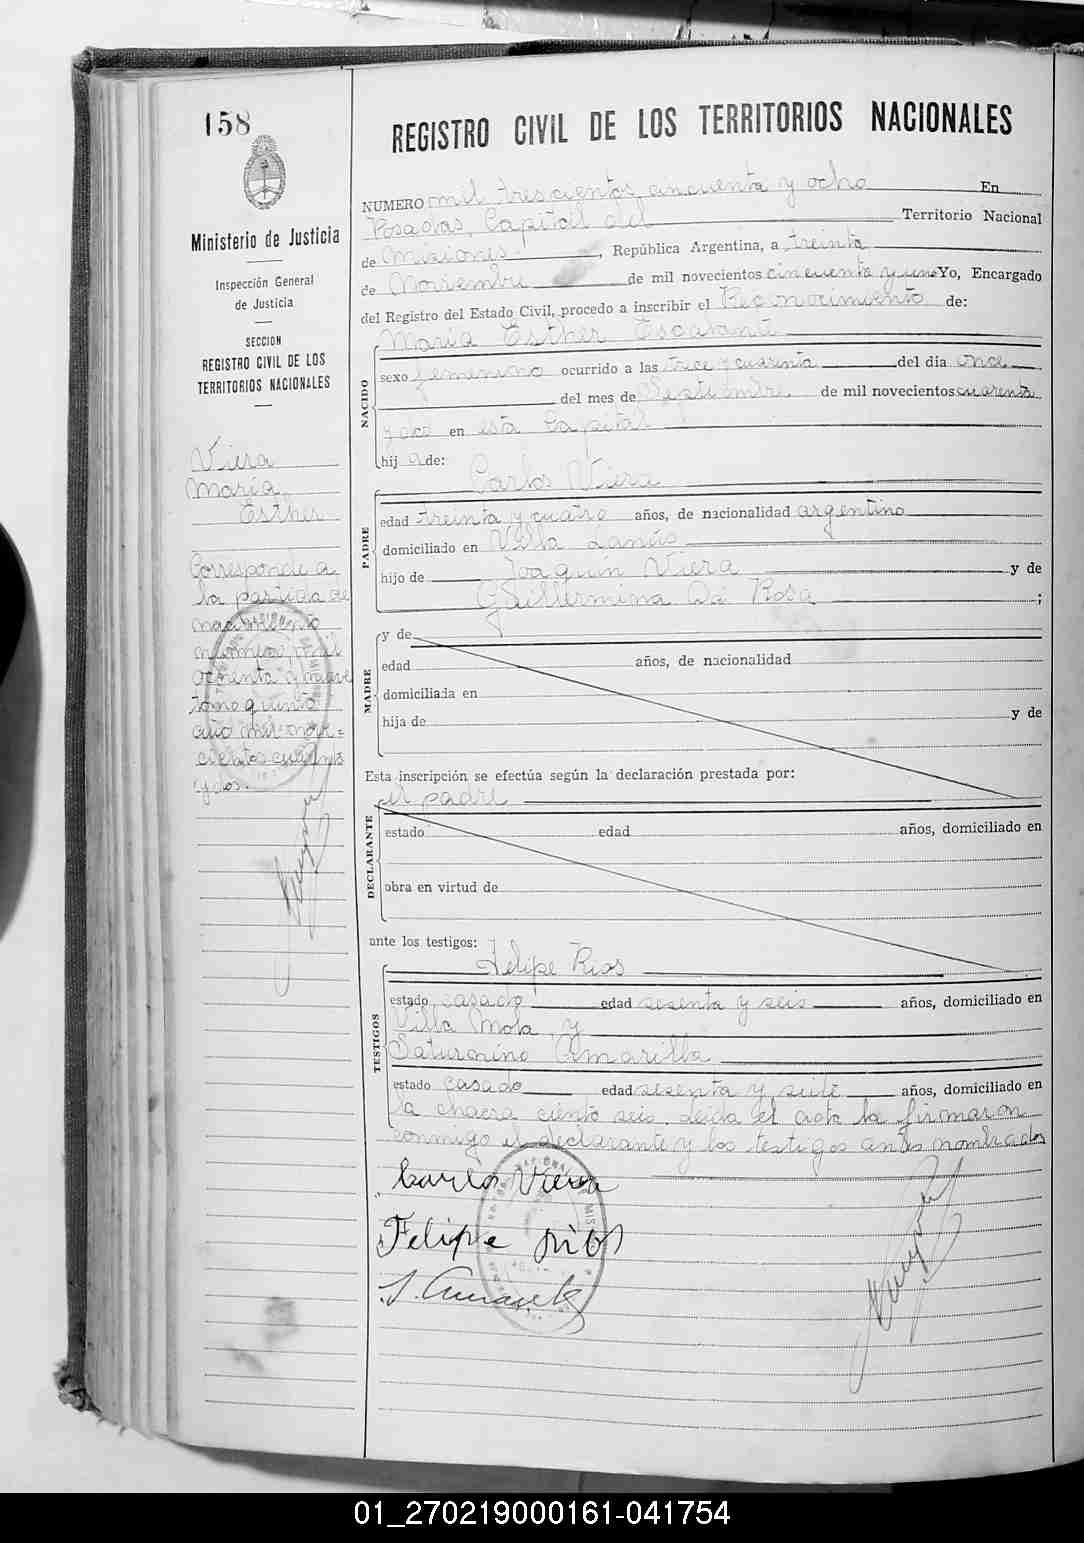 158
REGISTRO CIVIL DE LOS TERRITORIOS NACIONALES
Ministerio de Justicia
Inspección General
de Justicia
SECCION
REGISTRO CIVIL DE LOS
TERRITORIOS NACIONALES
Viera
María
Esther
Corresponde a
la partida de
nacimiento
número mil
ochenta y nueve
tomo quinto
año mil nove=
cientos cuarenta
y dos.
NUMERO mil trescientos cincuenta y ocho En
Posadas, Capital del Territorio Nacional
de Misiones, República Argentina, a treinta
de Noviembre de mil novecientos cincuenta y uno Yo, Encargado
del Registro del Estado Civil, procedo a inscribir el Reconocimiento de:
NACIDO
María Esther Escalante
sexo femenino ocurrido a las trece y cuarenta del día once
del mes de Septiembre de mil novecientos cuarenta
y dos en esta Capital
hij a de:
PADRE
Carlos Viera
edad treinta y cuatro años, de nacionalidad argentino
domiciliado en Villa Lanús
hijo de Joaquin Viera y de
Guillermina Da Rosa ;
MADRE
y de
edad años, de nacionalidad
domiciliada en
hija de y de
Esta inscripción se efectúa según la declaración prestada por:
DECLARANTE
el padre
estado edad años, domiciliado en
obra en virtud de
ante los testigos:
TESTIGOS
Felipe Rios
estado casado edad sesenta y seis años, domiciliado en
Villa Mola, y
Saturnino Amarilla
estado casado edad sesenta y siete años, domiciliado en
la chacra ciento seis. Leida el acta la firmaron
conmigo el declarante y los testigos antes nombrados
Carlos Viera
Felipe Rios
01_270219000161-041754